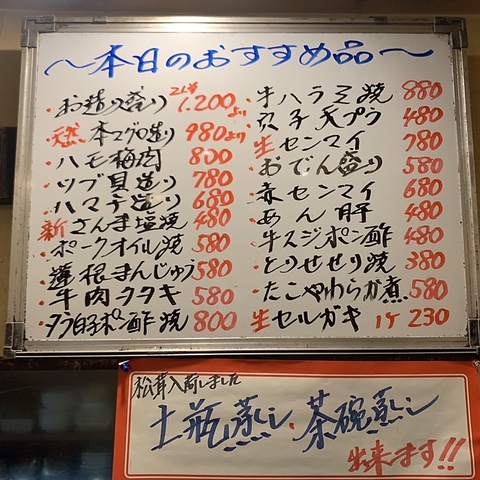 〜本日のおすすめ品〜
・お造り盛り 2人前 1,200より
・天然本マグロ造り 980より
・ハモ梅肉 800
・ツブ貝造り 780
・ハマチ造り 680
・新さんま塩焼 480
・ポークオイル焼 580
・蓮根まんじゅう 580
・牛肉タタキ 580
・タラ白子ポン酢焼 800
・牛ハラミ焼 880
・穴子天プラ 480
・生センマイ 780
・おでん盛り 580
・赤センマイ 680
・あん肝 480
・牛スジポン酢 480
・とりせせり焼 380
・たこやわらか煮 580
・生セルガキ 1ケ 230
松茸入荷しました
土瓶蒸し・茶碗蒸し
出来ます!!